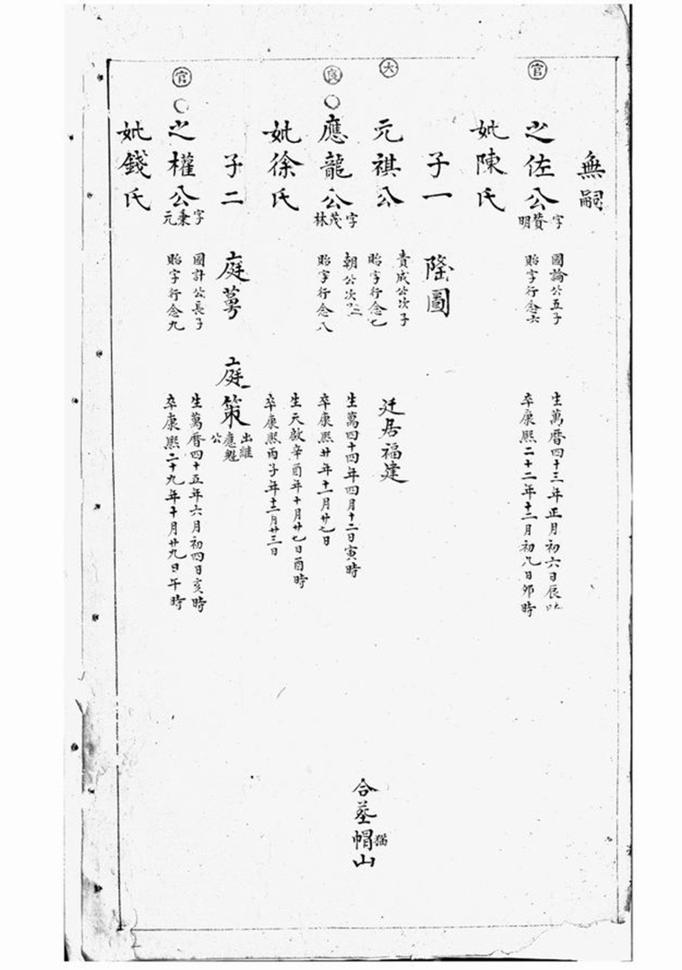 無嗣
官
之佐公 字贊明
國論公五子
貽字行念六
生萬曆四十三年正月初六日辰時
卒康熙二十二年十二月初八日卯時
妣陳氏
子一 隆圖
大
元祺公
貴成公次子
貽字行念七
迁居福建
合墓帽山
良
應龍公 字茂林
朝公次子
貽字行念八
生萬四十四年四月十二日寅時
卒康熙廿年十一月廿七日
妣徐氏
生天啟辛酉年十月廿七日酉時
卒康熙丙子年十二月廿三日
子二 庭萼 庭策 出繼應魁公
官
之權公 字秉元
國計公長子
貽字行念九
生萬曆四十五年六月初四日亥時
卒康熙二十九年十月廿九日午時
妣錢氏